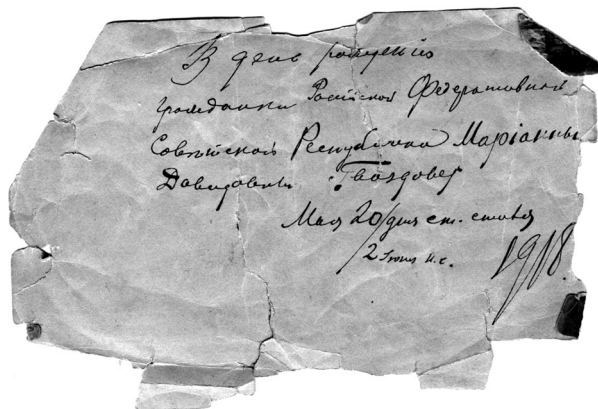 В день рождения
гражданки Российской Федеративной
Советской Республики Маріанны
Давидовны Гвоздовер
Мая 20/дня ст. стиля
2 Iюня н.с. 1918.